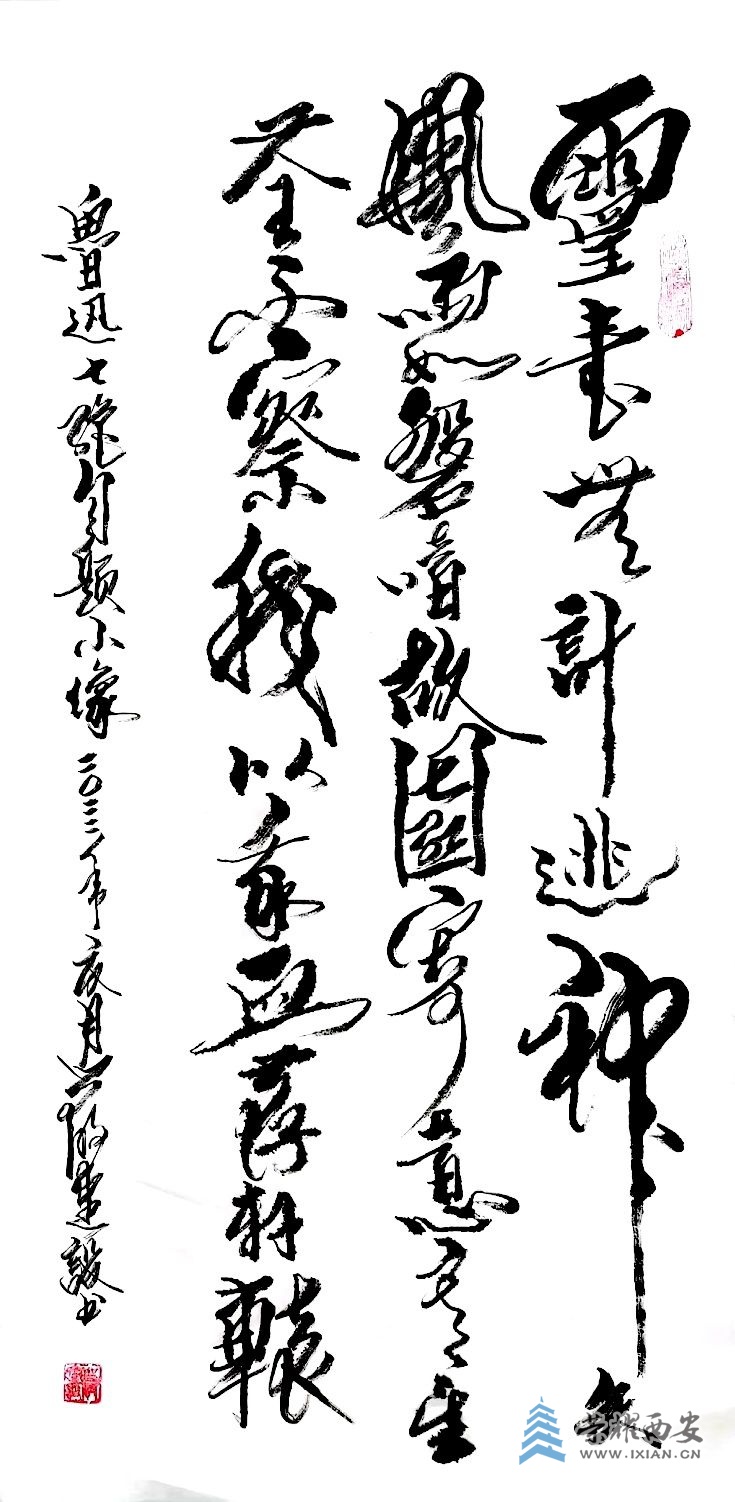 靈臺無計逃神矢
風雨如磐暗故園寄意寒星
荃不察我以我血薦軒轅
魯迅七絕自題小像
荣耀西安
WWW.IXIAN.CN